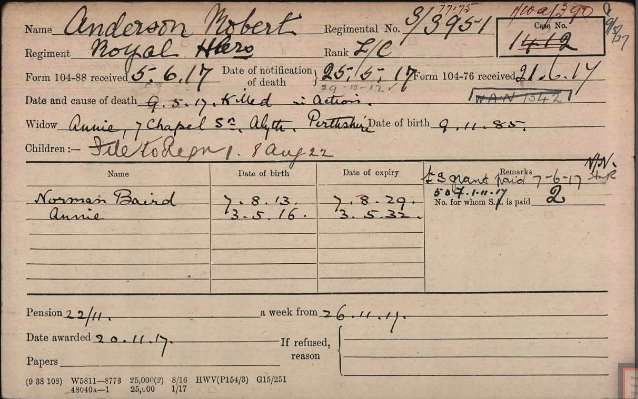 Name Anderson Robert Regimental No. S/3951 Case No.
Regiment Royal Hrs Rank L/C 1412
Form 104-88 received 5.6.17 Date of notification of death } 25.5.17 Form 104-76 received 21.6.17
Date and cause of death 9.5.17. Killed in Action. WAN 1542
Widow Annie, 7 Chapel St, Alyth, Perthshire Date of birth 9.11.85.
Children:— File to Regn 1. 8 Aug 22
Name Date of birth Date of expiry Remarks
£3 grant paid 7-6-17
Norman Baird 7.8.13. 7.8.29. No. for whom S.A. is paid 2
Annie 3.5.16. 3.5.32.
Pension 22/11. a week from 26.11.17.
Date awarded 20.11.17. If refused, reason
Papers
(9 38 103) W5811—8773 25,000(2) 8/16 HWV(P154/3) G15/251
48040A—1 25,000 1/17